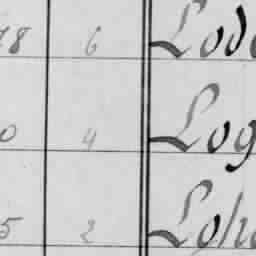 78 6 Lod
0 4 Log
5 2 Loh